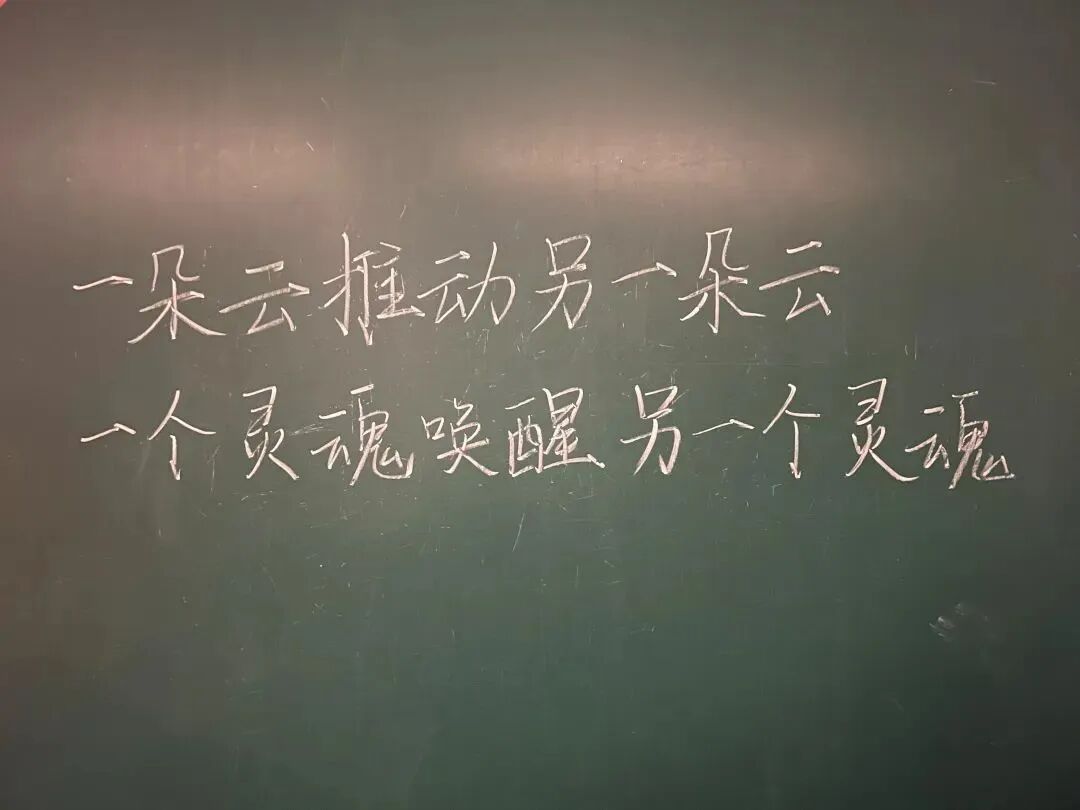 一朵云推动另一朵云
一个灵魂唤醒另一个灵魂